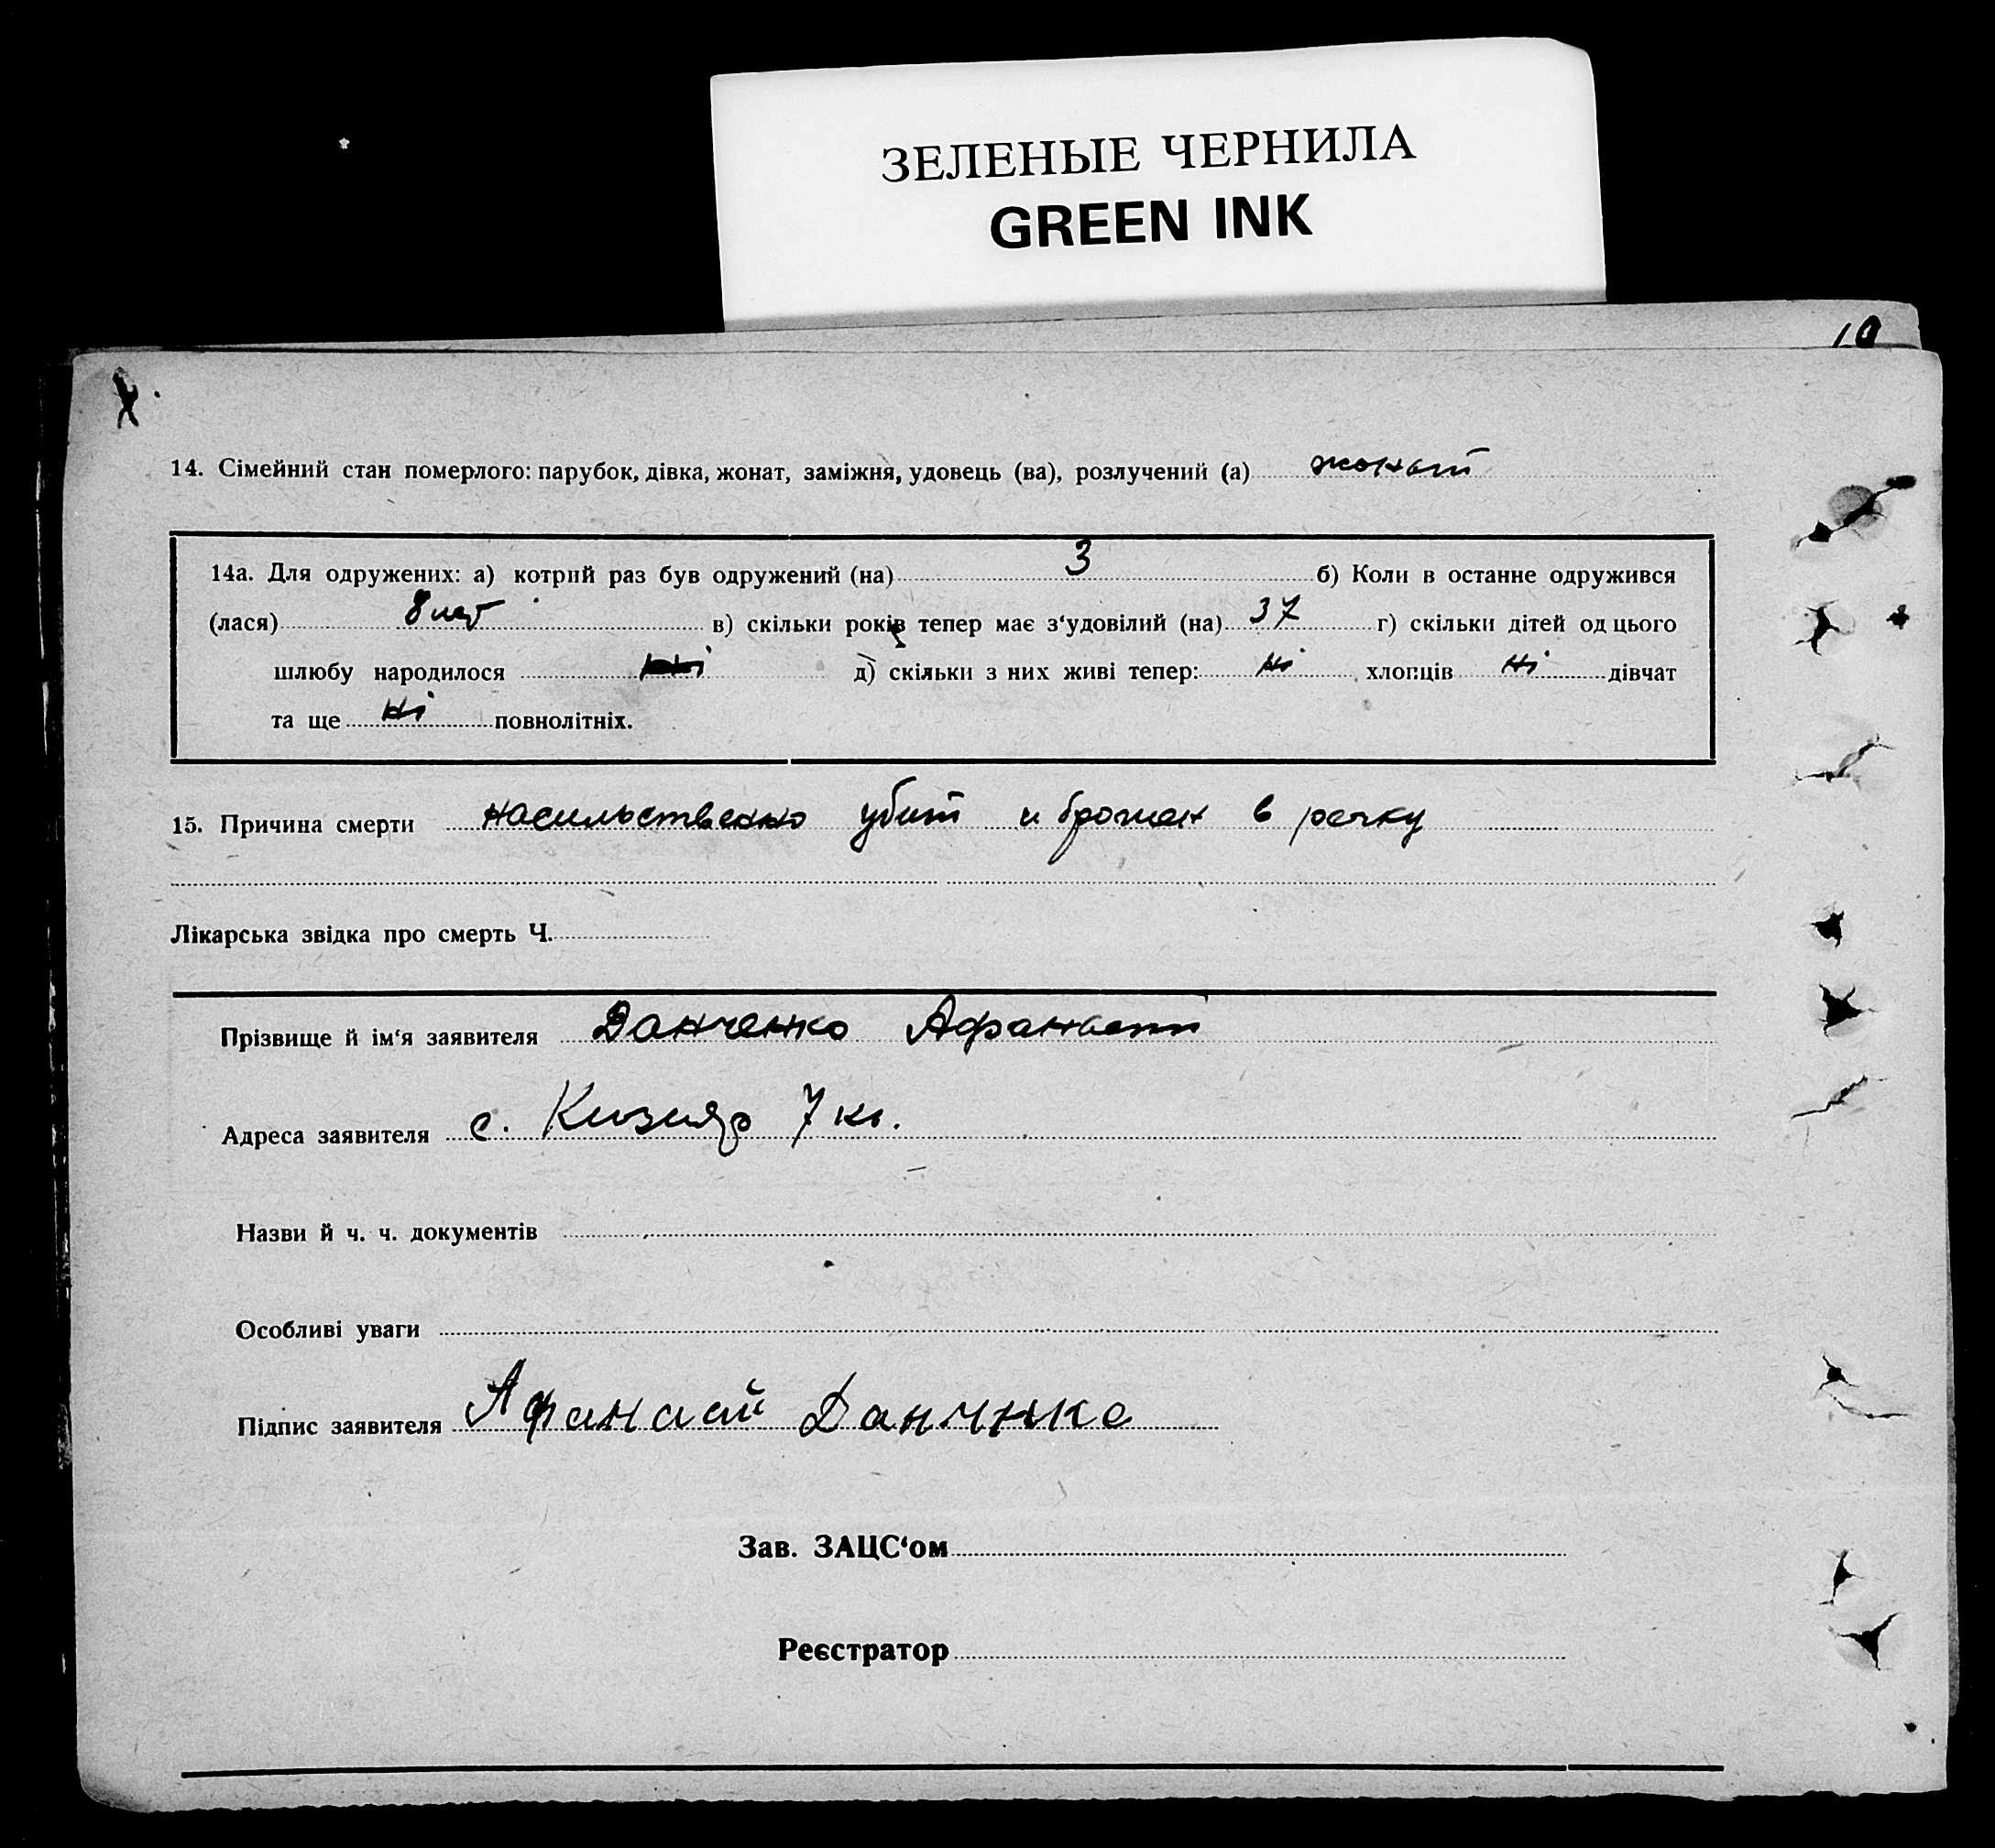 ЗЕЛЕНЫЕ ЧЕРНИЛА
GREEN INK
10
14. Сімейний стан померлого: парубок, дівка, жонат, заміжня, удовець (ва), розлучений (а) жонат
14а. Для одружених: а) котрий раз був одружений (на) 3 б) Коли в останне одружився
(лася) 8 лет в) скільки років тепер має з‘удовілий (на) 37 г) скільки дітей од цього
шлюбу народилося ні д) скільки з них живі тепер: ні хлопців ні дівчат
та ще ні повнолітніх.
15. Причина смерти насильственно убит и брошен в речку
Лікарська звідка про смерть Ч.
Прізвище й ім‘я заявителя Данченко Афанасий
Адреса заявителя с. Кизияр 7 кв.
Назви й ч. ч. документів
Особливі уваги
Підпис заявителя Афанаай Данчнко
Зав. ЗАЦС‘ом
Реєстратор